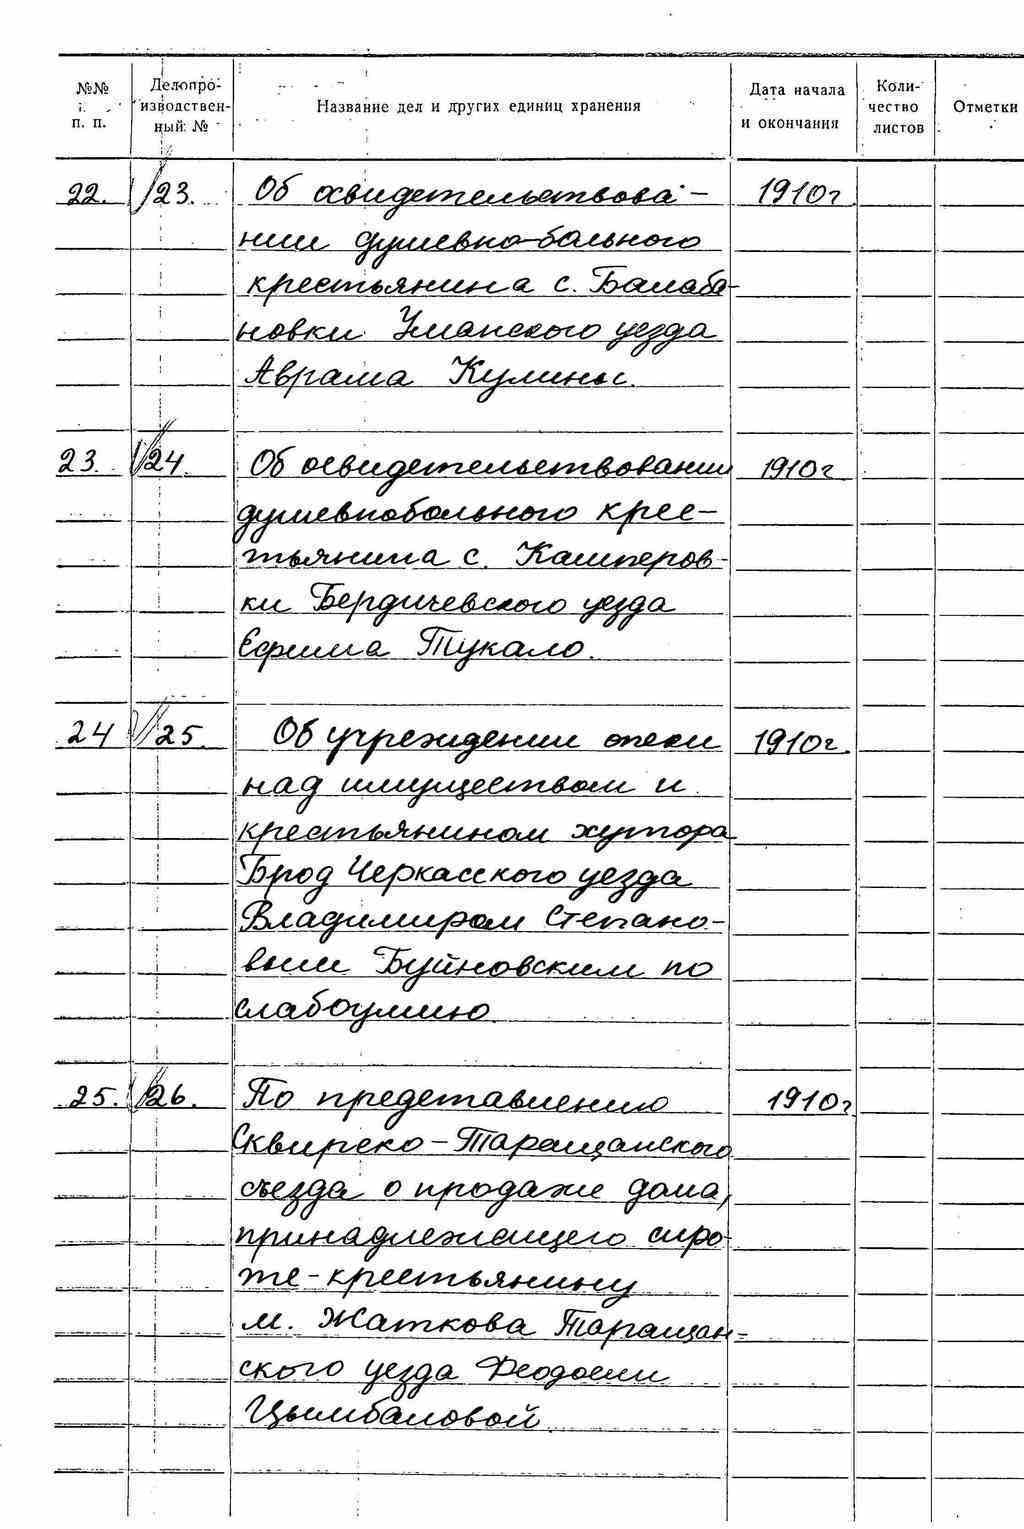 №№ п. п.
Делопро-
изводствен-
ный №
Название дел и других единиц хранения
Дата начала
и окончания
Коли-
чество
листов
Отметки
22. 23. Об освидетельствова- 1910г
нии душевно-больного
крестьянина с. Балаба-
новки Уманского уезда
Аврама Кулины.
23. 24. Об освидетельствовании 1910г.
душевнобольного крес-
тьянина с. Кашперов-
ки Бердичевского уезда
Ефима Тукало.
24 25. Об учреждении опеки 1910г.
над имуществом и
крестьянином хутора
Брод Черкасского уезда
Владимиром Степано-
вым Буйновским по
слабоумию.
25. 26. По представлению 1910г
Сквирско-Таращанского
съезда о продаже дома,
принадлежащего сиро-
те-крестьянину
м. Жаткова Таращан-
ского уезда Феодосии
Цымбаловой